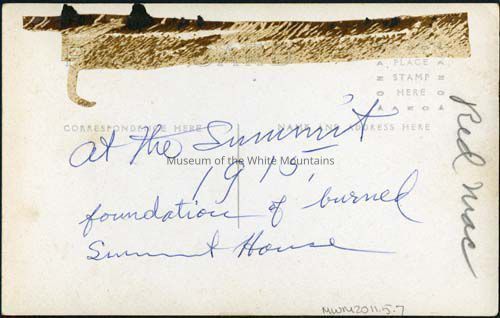 PLACE
STAMP
HERE
CORRESPONDENCE HERE
NAME AND ADDRESS HERE
at the Summit
Museum of the White Mountains
1915,
foundation of burned
Summit House
Red Mac
MWM2011.5.7